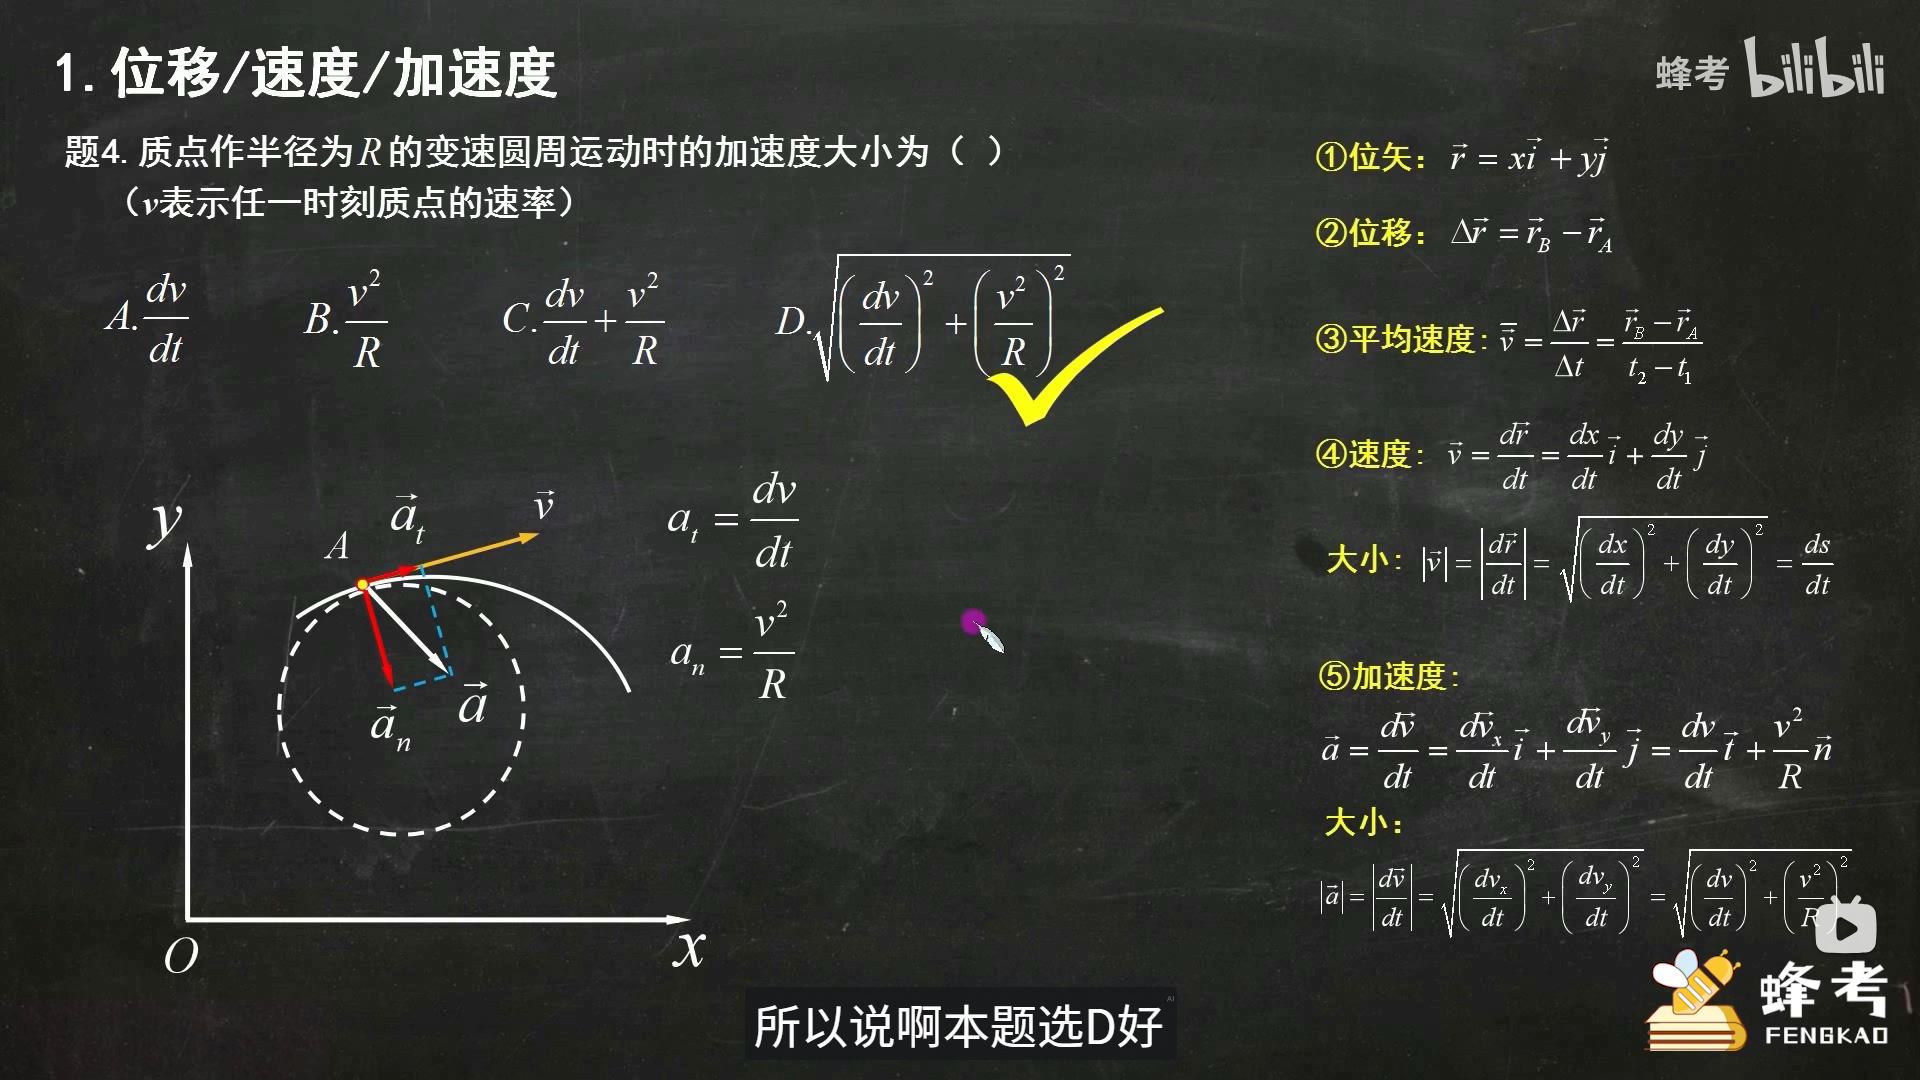 1.位移/速度/加速度
蜂考 bilibili
题4.质点作半径为R的变速圆周运动时的加速度大小为（ ）
（v表示任一时刻质点的速率）
A. dv/dt B. v²/R C. dv/dt + v²/R D. √((dv/dt)² + (v²/R)²)
y
A
a⃗t
v⃗
a⃗n
a⃗
O
x
at = dv/dt
an = v²/R
①位矢： r⃗ = xi⃗ + yj⃗
②位移： Δr⃗ = r⃗B − r⃗A
③平均速度: v̄⃗ = Δr⃗/Δt = (r⃗B − r⃗A)/(t₂ − t₁)
④速度: v⃗ = dr⃗/dt = dx/dt i⃗ + dy/dt j⃗
大小: |v⃗| = |dr⃗/dt| = √((dx/dt)² + (dy/dt)²) = ds/dt
⑤加速度:
a⃗ = dv⃗/dt = dv⃗x/dt i⃗ + dv⃗y/dt j⃗ = dv/dt t⃗ + v²/R n⃗
大小:
|a⃗| = |dv⃗/dt| = √((dvx/dt)² + (dvy/dt)²) = √((dv/dt)² + (v²/R)²)
蜂考
FENGKAO
AI
所以说啊本题选D好